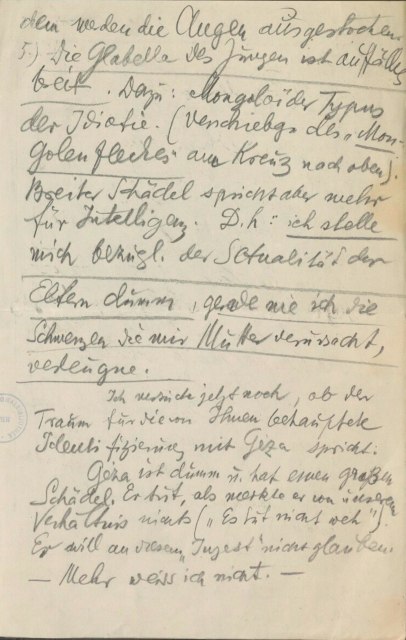 dem werden die Augen ausgestochen.
5.) Die Glabella des Jungen ist auffällig
breit. Dazu: Mongoloïder Typus
der Idiotie. (Verschiebg des „Mon-
golenfleckes“ am Kreuz nach oben).
Breiter Schädel spricht aber mehr
für Intelligenz. D.h: ich stelle
mich bezügl. der Sexualität der
Eltern dumm, gerade wie ich die
Schmerzen die mir Mutter verursacht,
verleugne.
Ich versuche jetzt noch, ob der
Traum für die von Ihnen behauptete
Identifizierung mit Geza spricht:
Geza ist dumm u. hat einen großen
Schädel. Er tut, als merkte er von unserem
Verhältnis nichts („Es tut nicht weh“).
Er will an diesen „Inzest“ nicht glauben.
— Mehr weiss ich nicht. —